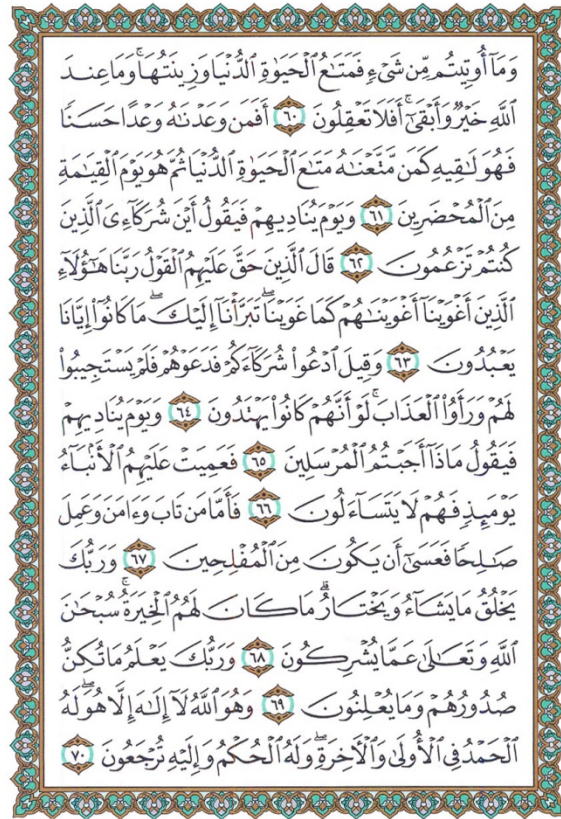 وَمَآ أُوتِيتُم مِّن شَىْءٍ فَمَتَـٰعُ ٱلْحَيَوٰةِ ٱلدُّنْيَا وَزِينَتُهَا ۚ وَمَا عِندَ
ٱللَّهِ خَيْرٌ وَأَبْقَىٰٓ ۚ أَفَلَا تَعْقِلُونَ ٦٠ أَفَمَن وَعَدْنَـٰهُ وَعْدًا حَسَنًا
فَهُوَ لَـٰقِيهِ كَمَن مَّتَّعْنَـٰهُ مَتَـٰعَ ٱلْحَيَوٰةِ ٱلدُّنْيَا ثُمَّ هُوَ يَوْمَ ٱلْقِيَـٰمَةِ
مِنَ ٱلْمُحْضَرِينَ ٦١ وَيَوْمَ يُنَادِيهِمْ فَيَقُولُ أَيْنَ شُرَكَآءِىَ ٱلَّذِينَ
كُنتُمْ تَزْعُمُونَ ٦٢ قَالَ ٱلَّذِينَ حَقَّ عَلَيْهِمُ ٱلْقَوْلُ رَبَّنَا هَـٰٓؤُلَآءِ
ٱلَّذِينَ أَغْوَيْنَآ أَغْوَيْنَـٰهُمْ كَمَا غَوَيْنَا ۖ تَبَرَّأْنَآ إِلَيْكَ ۖ مَا كَانُوٓا۟ إِيَّانَا
يَعْبُدُونَ ٦٣ وَقِيلَ ٱدْعُوا۟ شُرَكَآءَكُمْ فَدَعَوْهُمْ فَلَمْ يَسْتَجِيبُوا۟
لَهُمْ وَرَأَوُا۟ ٱلْعَذَابَ ۚ لَوْ أَنَّهُمْ كَانُوا۟ يَهْتَدُونَ ٦٤ وَيَوْمَ يُنَادِيهِمْ
فَيَقُولُ مَاذَآ أَجَبْتُمُ ٱلْمُرْسَلِينَ ٦٥ فَعَمِيَتْ عَلَيْهِمُ ٱلْأَنۢبَآءُ
يَوْمَئِذٍ فَهُمْ لَا يَتَسَآءَلُونَ ٦٦ فَأَمَّا مَن تَابَ وَءَامَنَ وَعَمِلَ
صَـٰلِحًا فَعَسَىٰٓ أَن يَكُونَ مِنَ ٱلْمُفْلِحِينَ ٦٧ وَرَبُّكَ
يَخْلُقُ مَا يَشَآءُ وَيَخْتَارُ ۗ مَا كَانَ لَهُمُ ٱلْخِيَرَةُ ۚ سُبْحَـٰنَ
ٱللَّهِ وَتَعَـٰلَىٰ عَمَّا يُشْرِكُونَ ٦٨ وَرَبُّكَ يَعْلَمُ مَا تُكِنُّ
صُدُورُهُمْ وَمَا يُعْلِنُونَ ٦٩ وَهُوَ ٱللَّهُ لَآ إِلَـٰهَ إِلَّا هُوَ ۖ لَهُ
ٱلْحَمْدُ فِى ٱلْأُولَىٰ وَٱلْـَٔاخِرَةِ ۖ وَلَهُ ٱلْحُكْمُ وَإِلَيْهِ تُرْجَعُونَ ٧٠